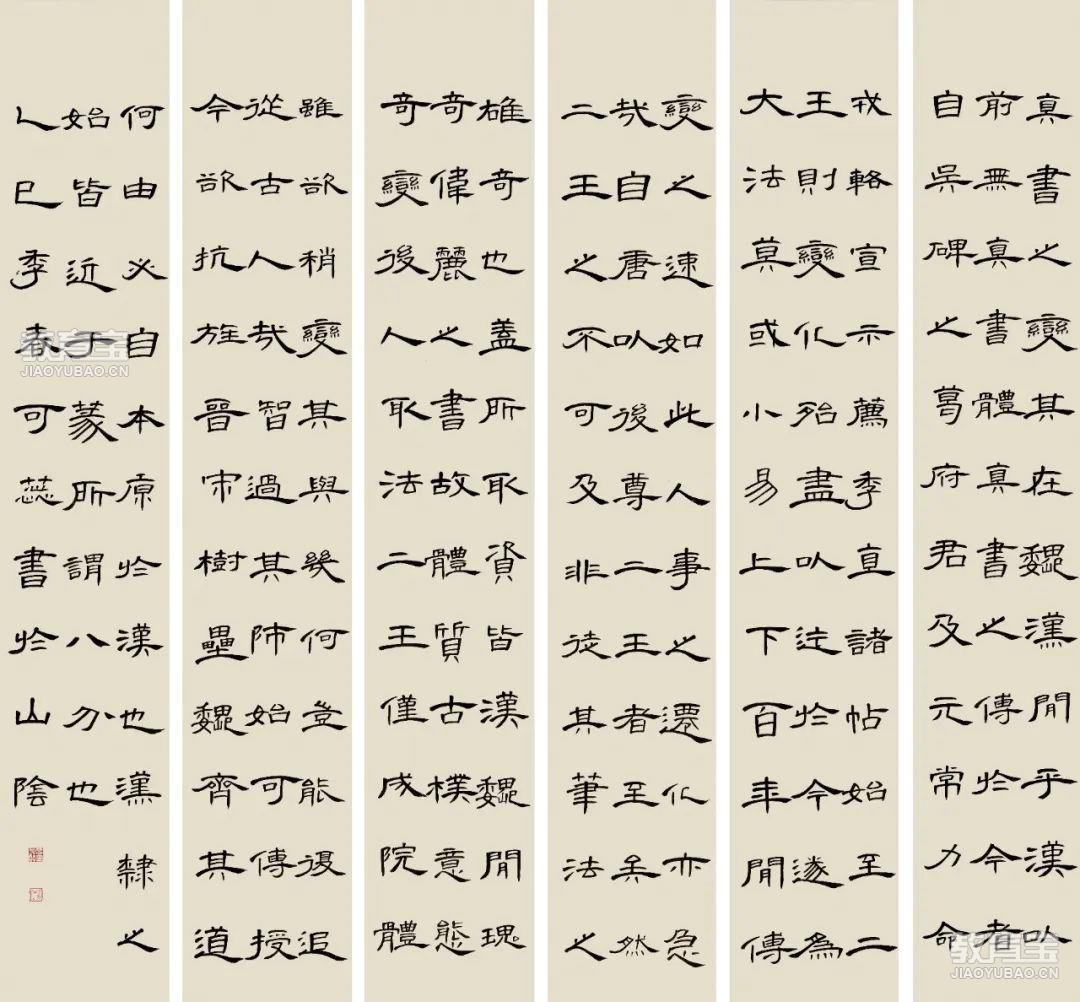 真書之變其在魏漢閒乎漢以
前無真書體真書之傳於今者
自吳碑之葛府君及元常力命
戎輅宣示薦季直諸帖始至二
王則變化殆盡以迄於今遂為
大法莫或小易上下百年閒傳
變之速如此人事之遷化亦急
哉自唐以後尊二王者至矣然
二王之不可及非徒其筆法之
雄奇也盖所取資皆漢魏閒瑰
奇偉麗之書故體質古樸意態
奇變後人取法二王僅成院體
雖欲稍變其與幾何豈能復追
從古人哉智過其師始可傳授
今欲抗旌晉宋樹壘魏齊其道
何由必自本原於漢也漢隸之
始皆近于篆所謂八分也
乙巳季春可蕊書於山陰
教育宝
JIAOYUBAO.CN
教育宝
JIAOYUBAO.CN